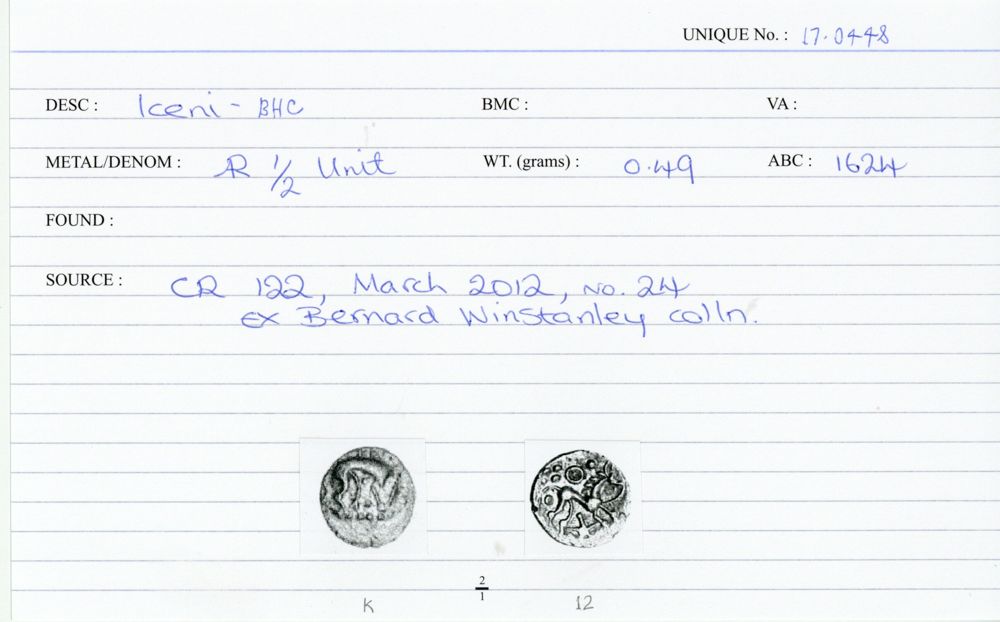 UNIQUE No. : 17.0448
DESC : Iceni - BHC BMC : VA :
METAL/DENOM : AR 1/2 Unit WT. (grams) : 0.49 ABC : 1624
FOUND :
SOURCE : CR 122, March 2012, no. 24
ex Bernard Winstanley colln.
2/1
K 12